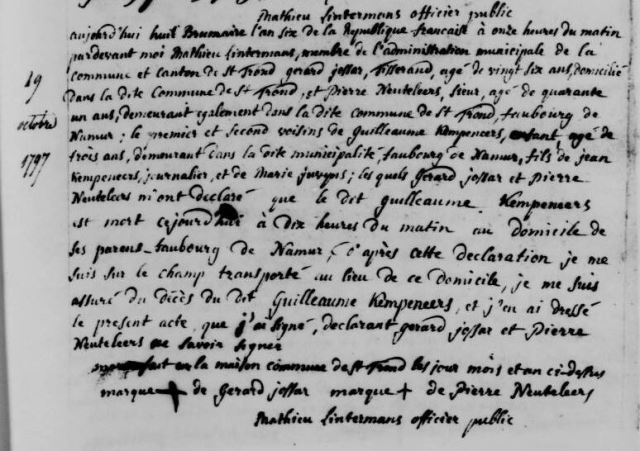 Mathieu Lintermans officier public
aujourd'hui huit Brumaire l'an six de la Republique francaise à onze heures du matin
pardevant moi Mathieu Lintermans, membre de l'administration municipale de la
commune et canton de St Trond gerard jossar, Tisserand, agé de vingt six ans, domicilié
19
dans la dite Commune de St Trond, et Pierre Neuteleers, sieur, agé de quarante
un ans, demeurant egalement dans la dite commune de St Trond, faubourg de
octobre
Namur; le premier et second voisins de Guilleaume Kempeneers, enfant agé de
1797
trois ans, demeurant dans la dite municipalité faubourg de Namur, fils de jean
Kempeneers, journalier, et de Marie ; les quels Gerard jossar et Pierre
Neuteleers m'ont declaré que le dit guilleaume Kempeneers
est mort cejourd'hui à dix heures du matin au domicile de
ses parens faubourg de Namur, d'après cette declaration je me
suis sur le champ transporté au lieu de ce domicile, je me suis
assuré du décès du dit Guilleaume Kempeneers, et j'en ai dressé
le present acte, que j'ai signé, declarant gerard jossar et Pierre
Neuteleers ne savoir signer
fait en la maison commune de St Trond les jour mois et an ci-dessus
marque + de Gerard jossar marque + de Pierre Neuteleers
Mathieu Lintermans officier public